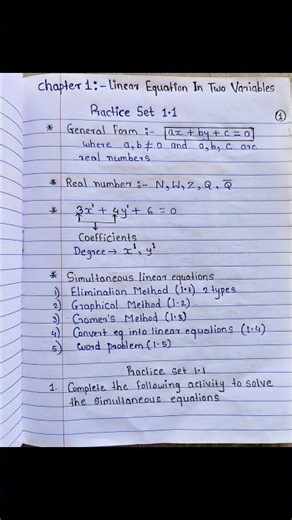 Chapter 1:- Linear Equation In Two Variables
Practice Set 1.1
①
* General form :- ax + by + c = 0
where a, b ≠ 0 and a, b, c are
real numbers
* Real number :- N, W, Z, Q, Q̅
* 3x¹ + 4y¹ + 6 = 0
Coefficients
Degree → x¹, y¹
* Simultaneous linear equations
1) Elimination Method (1.1) 2 types
2) Graphical Method (1.2)
3) Cramer's Method (1.3)
4) Convert eq into linear equations (1.4)
5) Word problem (1.5)
Practice set 1.1
1. Complete the following activity to solve
the simultaneous equations